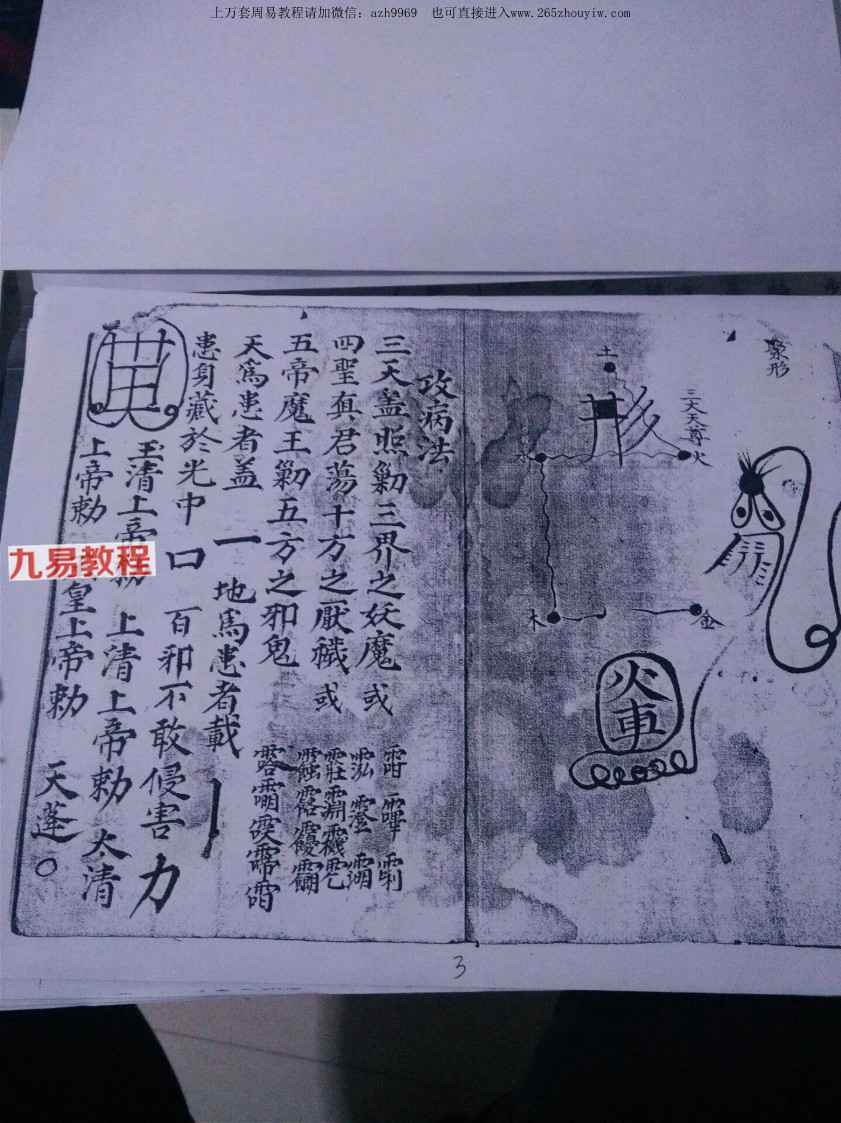 上万套周易教程请加微信：azh9969　也可直接进入www.265zhouyiw.com
聚形
三天天尊
土
火
木
金
形
火車
攻病法
三天盖照剿三界之妖魔或
四聖真君蕩十方之厭穢或
五帝魔王剿五方之邪鬼
天爲患者盖 一 地爲患者載 丨
患身藏於光中 口 百邪不敢侵害 力
玉清上帝勅 上清上帝勅 太清
上帝勅 皇上帝勅 天蓬〇
九易教程
3